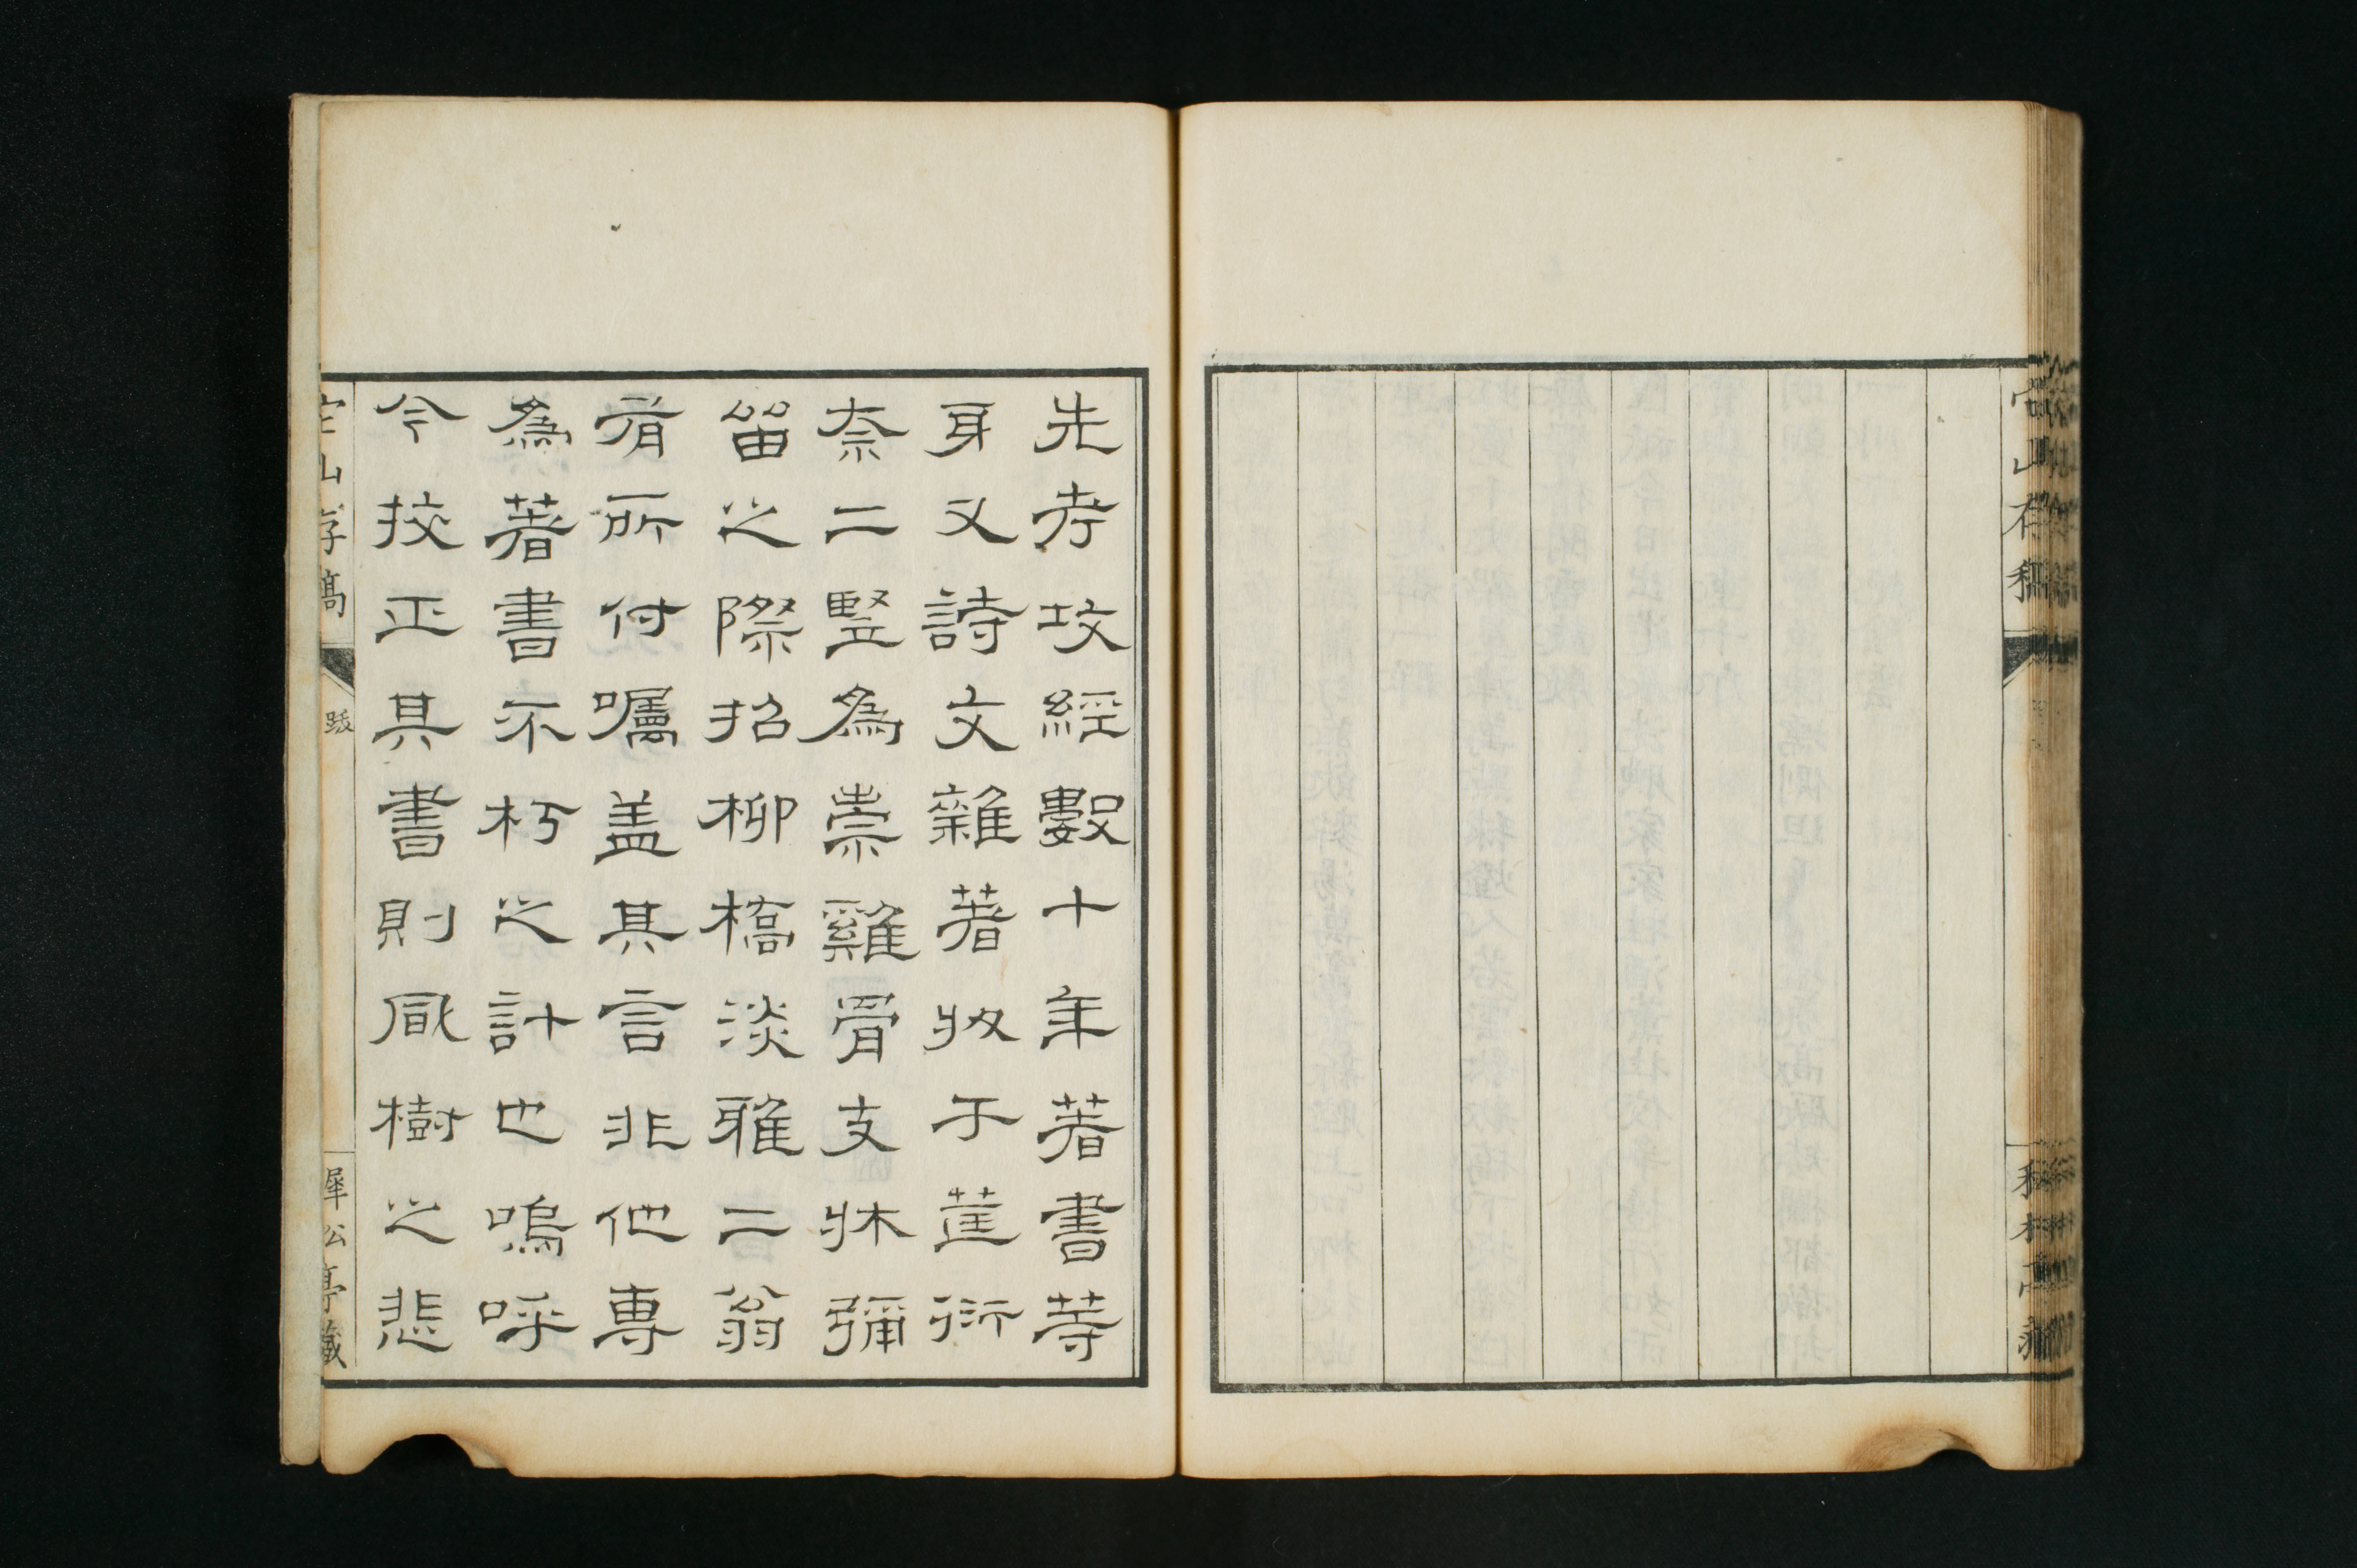 先考攻經數十年著書等
身又詩文雜著收于莛衍
柰二竪為祟雞骨支牀彌
留之際招柳橋淡雅二翁
有所付囑盖其言非他專
為著書不朽之計也嗚呼
今挍正其書則風樹之悲
存稿
跋
犀公亭藏